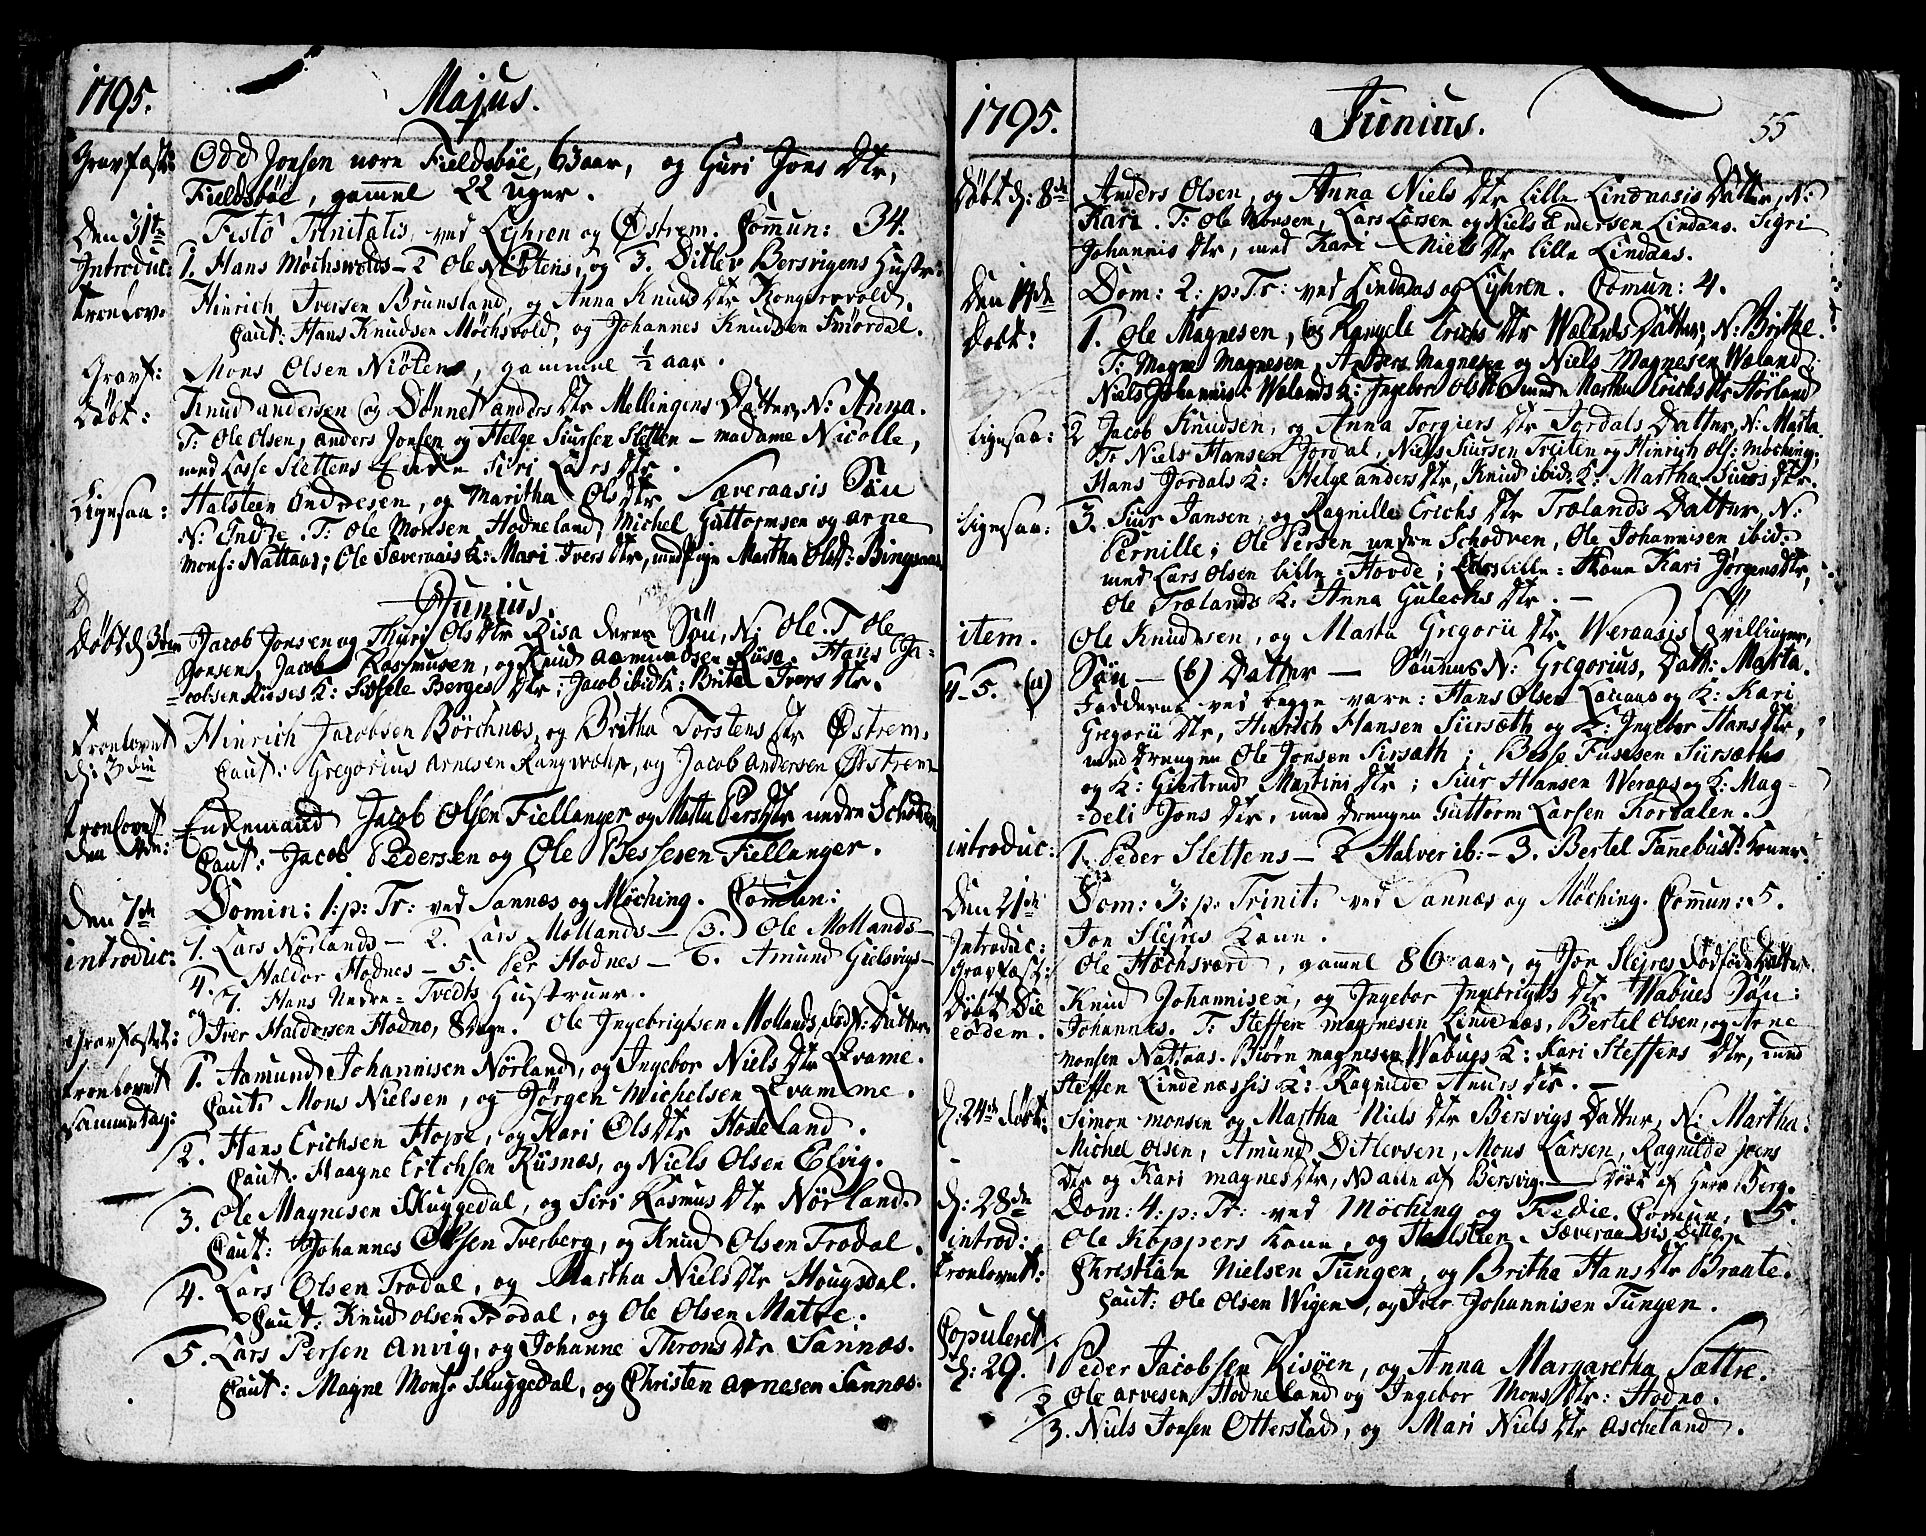 1795. Majus.
Gravfæst: Odd Jonsen nere Fieldsböe, 63 aar, og Guri Jons Dtr,
Fieldsböe, gammel 22 Uger.
Den 31te Festo Trinitatis, ved Lyhren og Østrem. Comun: 34.
Introduc: 1. Hans Möchswolds – 2 Ole Niötens, og 3. Ditlev Bersvigens Hustr:
Trolov: Hinrich Iversen Brunsland, og Anna Knuds Dtr Kongsrevold.
Caut: Hans Knudsen Möchsvold, og Johannes Knudsen Smördal.
Gravf: Mons Olsen Niöten, gammel ½ aar.
Döbt: Knud andersen og Dönnet anders Dtr Mellingens Datter, N: Anna.
T: Ole Olsen, anders Jonsen og Helge Siursen Sletten – madame Nicolle,
med Lasse Slettens Enke Siri Lars Dtr.
Ligesaa: Halsteen Andresen, og Maritha Ols Dtr Sæveraasis Sön
N: Endre. T: Ole Monsen Hodneland, Michel Guttormsen og Arne
Mons: Nattaas; Ole Sæveraais K: Mari Ivers Dtr, med Pige Martha Olsd:
Junius.
Döbt d. 3die Jacob Jonsen og Thuri Ols Dtr Risa deres Sön, N: Ole. T Ole
Jonsen, Jacob Rasmusen, og Knud Aamundsen Riise. Hans Ja-
cobsen Riises K: Sissele Berges Dtr; Jacob ibid K: Brite Ivers Dtr.
Trolovet Hinrich Jacobsen Börchnæs, og Britha Torstens Dtr Østrem.
d: 3die Caut: Gregorius Arnesen Rangwahr, og Jacob Andersen Østrem
Trolovet Enkemand Jacob Olsen Fiellanger og Matta Pers Dtr nedre Schodven
den 4de: Caut: Jacob Pedersen og Ole Bessesen Fiellanger.
Den 7de Domin: 1: p: Tr: ved Sannæs og Möching. Comun:
introduc: 1. Lars Nörlands – 2. Lars Mollands – 3. Ole Mollands –
4. Haldor Hodnes – 5. Per Hodnes – 6. Amund Gielsvigs –
og 7. Hans Nedre = Tvedts Hustruer.
Gravfæstet: Iver Haldorsen Hodne, 8 Dage. Ole Ingebrigtsen Mollands Datter
Trolovet 1. Aamund Johannisen Nörland, og Ingebor Niels Dtr Qvame.
Sammedag: Caut: Mons Nielsen, og Jörgen Michelsen Qvamme.
2. Hans Erichsen Hope, og Kari Ols Dtr Hodeland.
Caut: Haagne Erichsen Risnæs, og Niels Olsen Elvig.
3. Ole Magnesen Skuggedal, og Siri Rasmus Dtr Nörland.
Caut: Johannes Olsen Tverberg, og Knud Olsen Trodal.
4. Lars Olsen Trodal, og Martha Niels Dtr Hougsdal.
Caut: Knud olsen Trodal, og Ole Olsen Matre.
5. Lars Persen Anvig, og Johanne Throns Dtr Sannæs.
Caut: Magne Mons: Skuggedal, og Christen Arnesen Sannæs.
1795. Junius. 55
Döbt d: 8de Anders Olsen, og Anna Niels Dtr lille Lindaasis Datter, N:
Kari. T: Ole Monsen, Lars Larsen og Niels Andersen Lindaas. Sigri
Johannis Dtr, med Kari Niels Dtr lille Lindaas.
Den 14de Dom: 2: p: Tr: ved Lindaas og Lyhren. Comun: 4.
Döbt: 1. Ole Magnesen, og Rangele Erichs Dtr Wælands Datter, N: Brithe.
T: Magne Magnesen, Anders Magnesen og Niels Magnesen Weland;
Niels Johannis: Welands K: Ingebor Olsd: med Martha Erichs Dtr Hörland
Ligesaa: 2 Jacob Knudsen, og Anna Torgiers Dtr Jordals Datter, N: Marta.
T: Niels Hansen Jordal, Niels Siursen Treiten og Hinrich Ols: Möching;
Hans Jordals K: Helge anders Dtr, Knud ibid: K: Martha Siurs Dtr.
Ligesaa: 3. Siur Jansen, og Ragnille Erichs Dtr Trælands Datter, N:
Pernille; Ole Persen nedre Schodven, Ole Johannisen ibid:
med Lars Olsen lille = Hovde; Lars lille = Kone Kari Jörgens Dtr,
Ole Trælands K: Anna Gulechs Dtr. –
item. Ole Knudesen, og Marta Gregorii Dtr Weraasis Tvillinger,
4–5. (a) Sön – (b) Datter – Sönnens N: Gregorius, Datt: Marta.
Fadderne ved begge vare: Hans Olsen og K: Kari
Gregorii Dtr, Hinrich Hansen Sürsæth og K: Ingebor Hans Dtr,
med Drengen Ole Jonsen Sirsath; Besse Fusesen Sürsæths
og K: Giertrud Martini Dtr; Siur Hansen Weraas og K: Mag-
=deli Jons Dtr, med Drengen Guttorm Larsen Kordalen.
introduc: 1. Peder Slettens – 2 Halver ib: – 3. Bertel Fanebust: Koner.
Den 21de Dom: 3: p: Trinit: ved Sannæs og Möching. Comun: 5.
Introduc: Jon Slejres Kone.
Gravfæst: Ole Höchsværd, gamel 86 aar, og Jon Slejres Dödföde Datter
Döbt Die Knud Johannisen, og Ingebor Ingebrigts Dtr Wabues Sön:
eodem. Johannes. T: Steffen magnesen Lindenæs, Bertel Olsen, og Arne
monsen Nattaas. Biörn magnesen Wabues K: Kari Steffens Dtr, med
Steffen Lindenæssis K: Ragnilde Anders Dtr. –
d: 24de Döbt: Simon monsen og Martha Niels Dtr Bersvigs Datter, N: Martha:
Michel Olsen, Amund Ditlevsen, Mons Larsen, Ragnilde Joens
Dtr og Kari magnes Dtr, Naune af Bersvig. – Döbt af Herr Berg.
d: 28de Dom: 4: p: Tr: ved Möching og Fedie. Comun. 25.
introd: Ole Köppers Kone, og Halsteen Sæveraasis Ditto.
Trolovet: Christian Nielsen Tungen, og Britha Hans Dtr Braate.
Caut: Ole Olsen Wigen, og Iver Johannisen Tungen.
Copuleret 1 Peder Jacobsen Risöen, og Anna Margaretha Sættre.
d: 29. 2 Ole arvesen Hodneland og Ingebor Mons Dtr: Hodne.
3. Niels Jonsen Otterstad, og Mari Niels Dtr Ascheland.